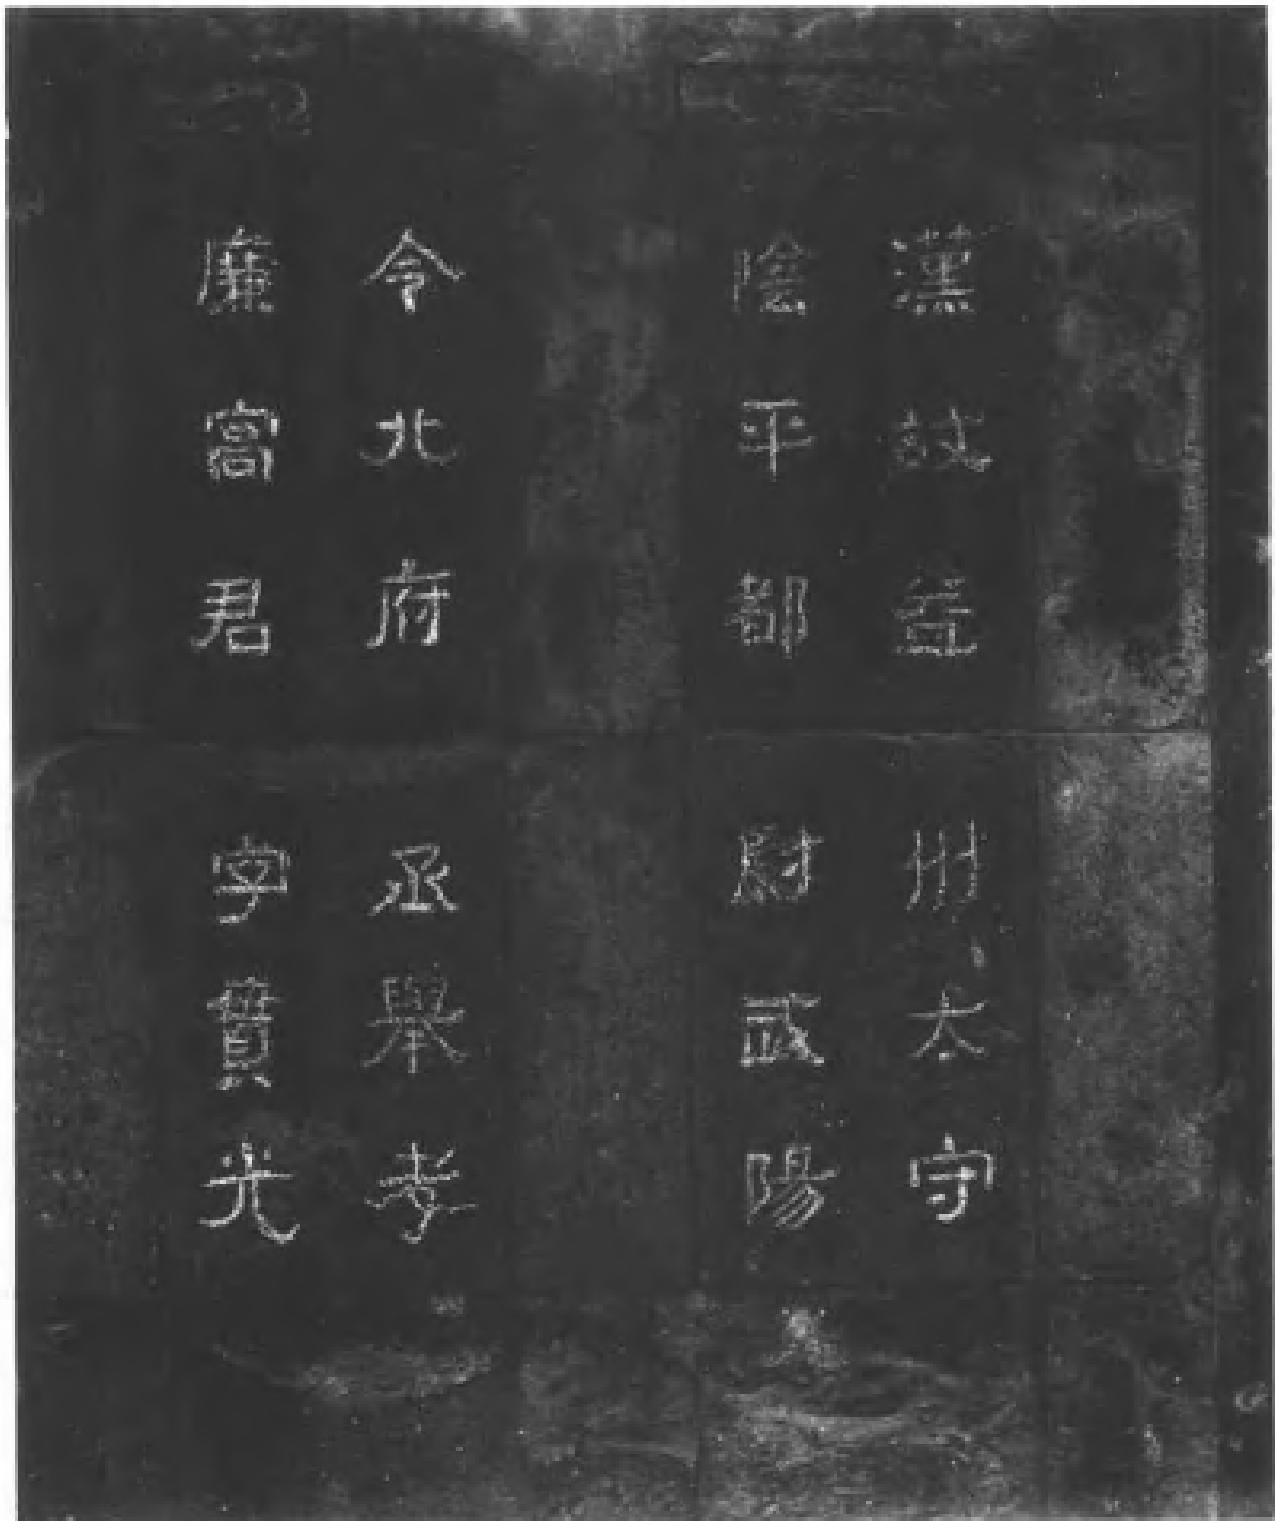 漢故益州太守
陰平都尉武陽
令北府丞舉孝
廉高君字貫光